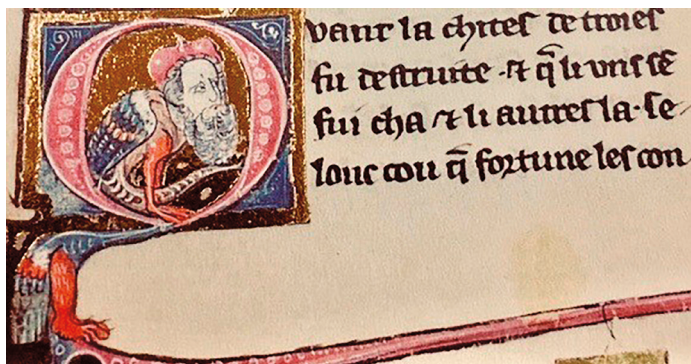 Quant la chites de troies
fu destruite · ⁊ q̄ li uns sē
fui cha ⁊ li autres la · se
lonc cou q̄ fortune les con